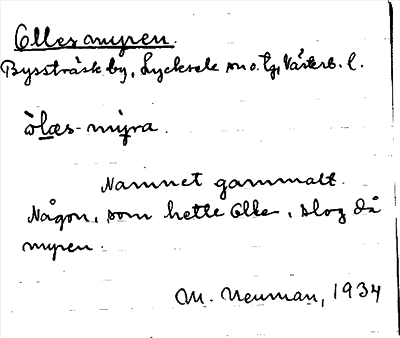 Ollesmyren.
Bysströsk by, Lycksele sn o. tg, Västerb. l.
òlæs-mýra.
Namnet gammalt.
Någon, som hette Olle, slog då
myren.
M. Neuman, 1934